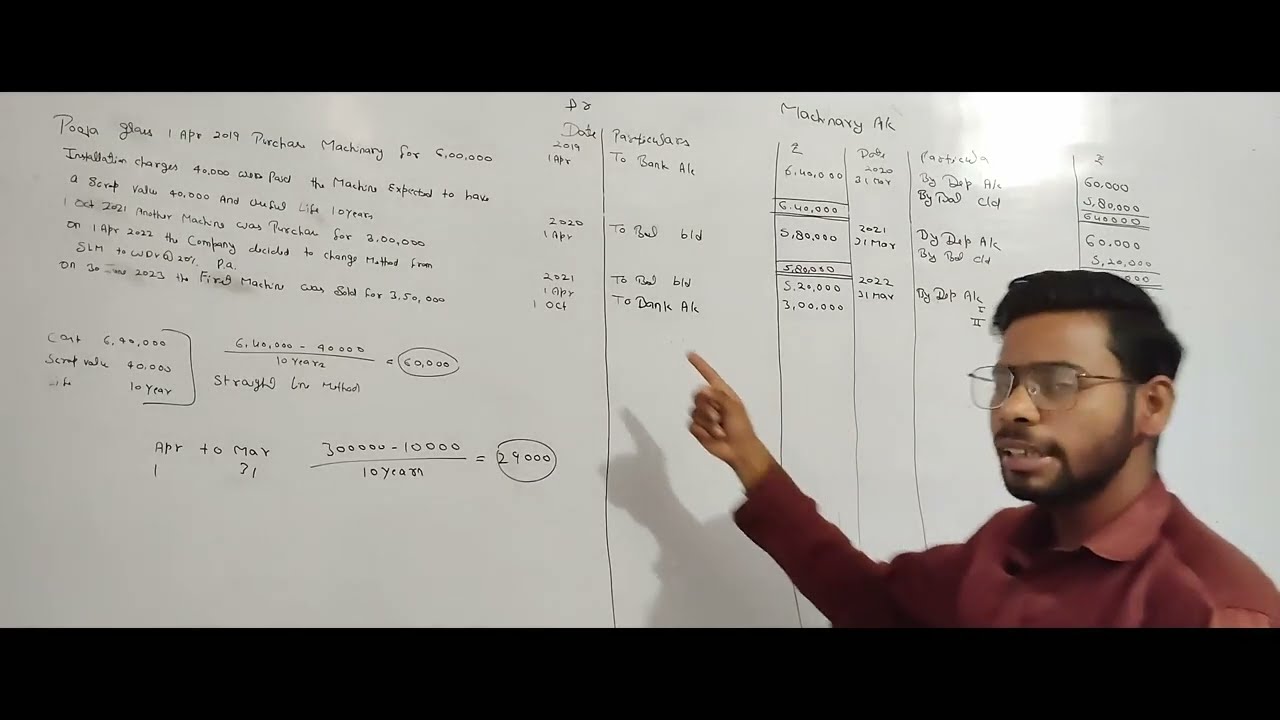 Pooja glass 1 Apr 2019 Purchase Machinary for 6,00,000
Installation charges 40,000 were Paid the Machine Expected to have
a Scrap value 40,000 And Useful Life 10 years
1 Oct 2021 Another Machine was Purchase for 3,00,000
On 1 Apr 2022 the Company decided to change Method from
SLM to WDV @ 20% P.a.
On 30 2023 the First Machine was Sold for 3,50,000
Cost 6,40,000
Scrap value 40,000
Life 10 year
6,40,000 - 40000
10 years
= 60,000
Straight line Method
Apr to Mar
1 31
300000 - 10000
10 years
= 29000
Dr
Machinary A/c
Date Particulars ₹ Date Particula ₹
2019 2020
1 Apr To Bank A/c 6,40,000 31 Mar By Dep A/c 60,000
By Bal c/d 5,80,000
6,40,000 640000
2020 2021
1 Apr To Bal b/d 5,80,000 31 Mar By Dep A/c 60,000
By Bal c/d 5,20,000
5,80,000
2021 2022
1 Apr To Bal b/d 5,20,000 31 Mar By Dep A/c
1 Oct To Bank A/c 3,00,000 I
II